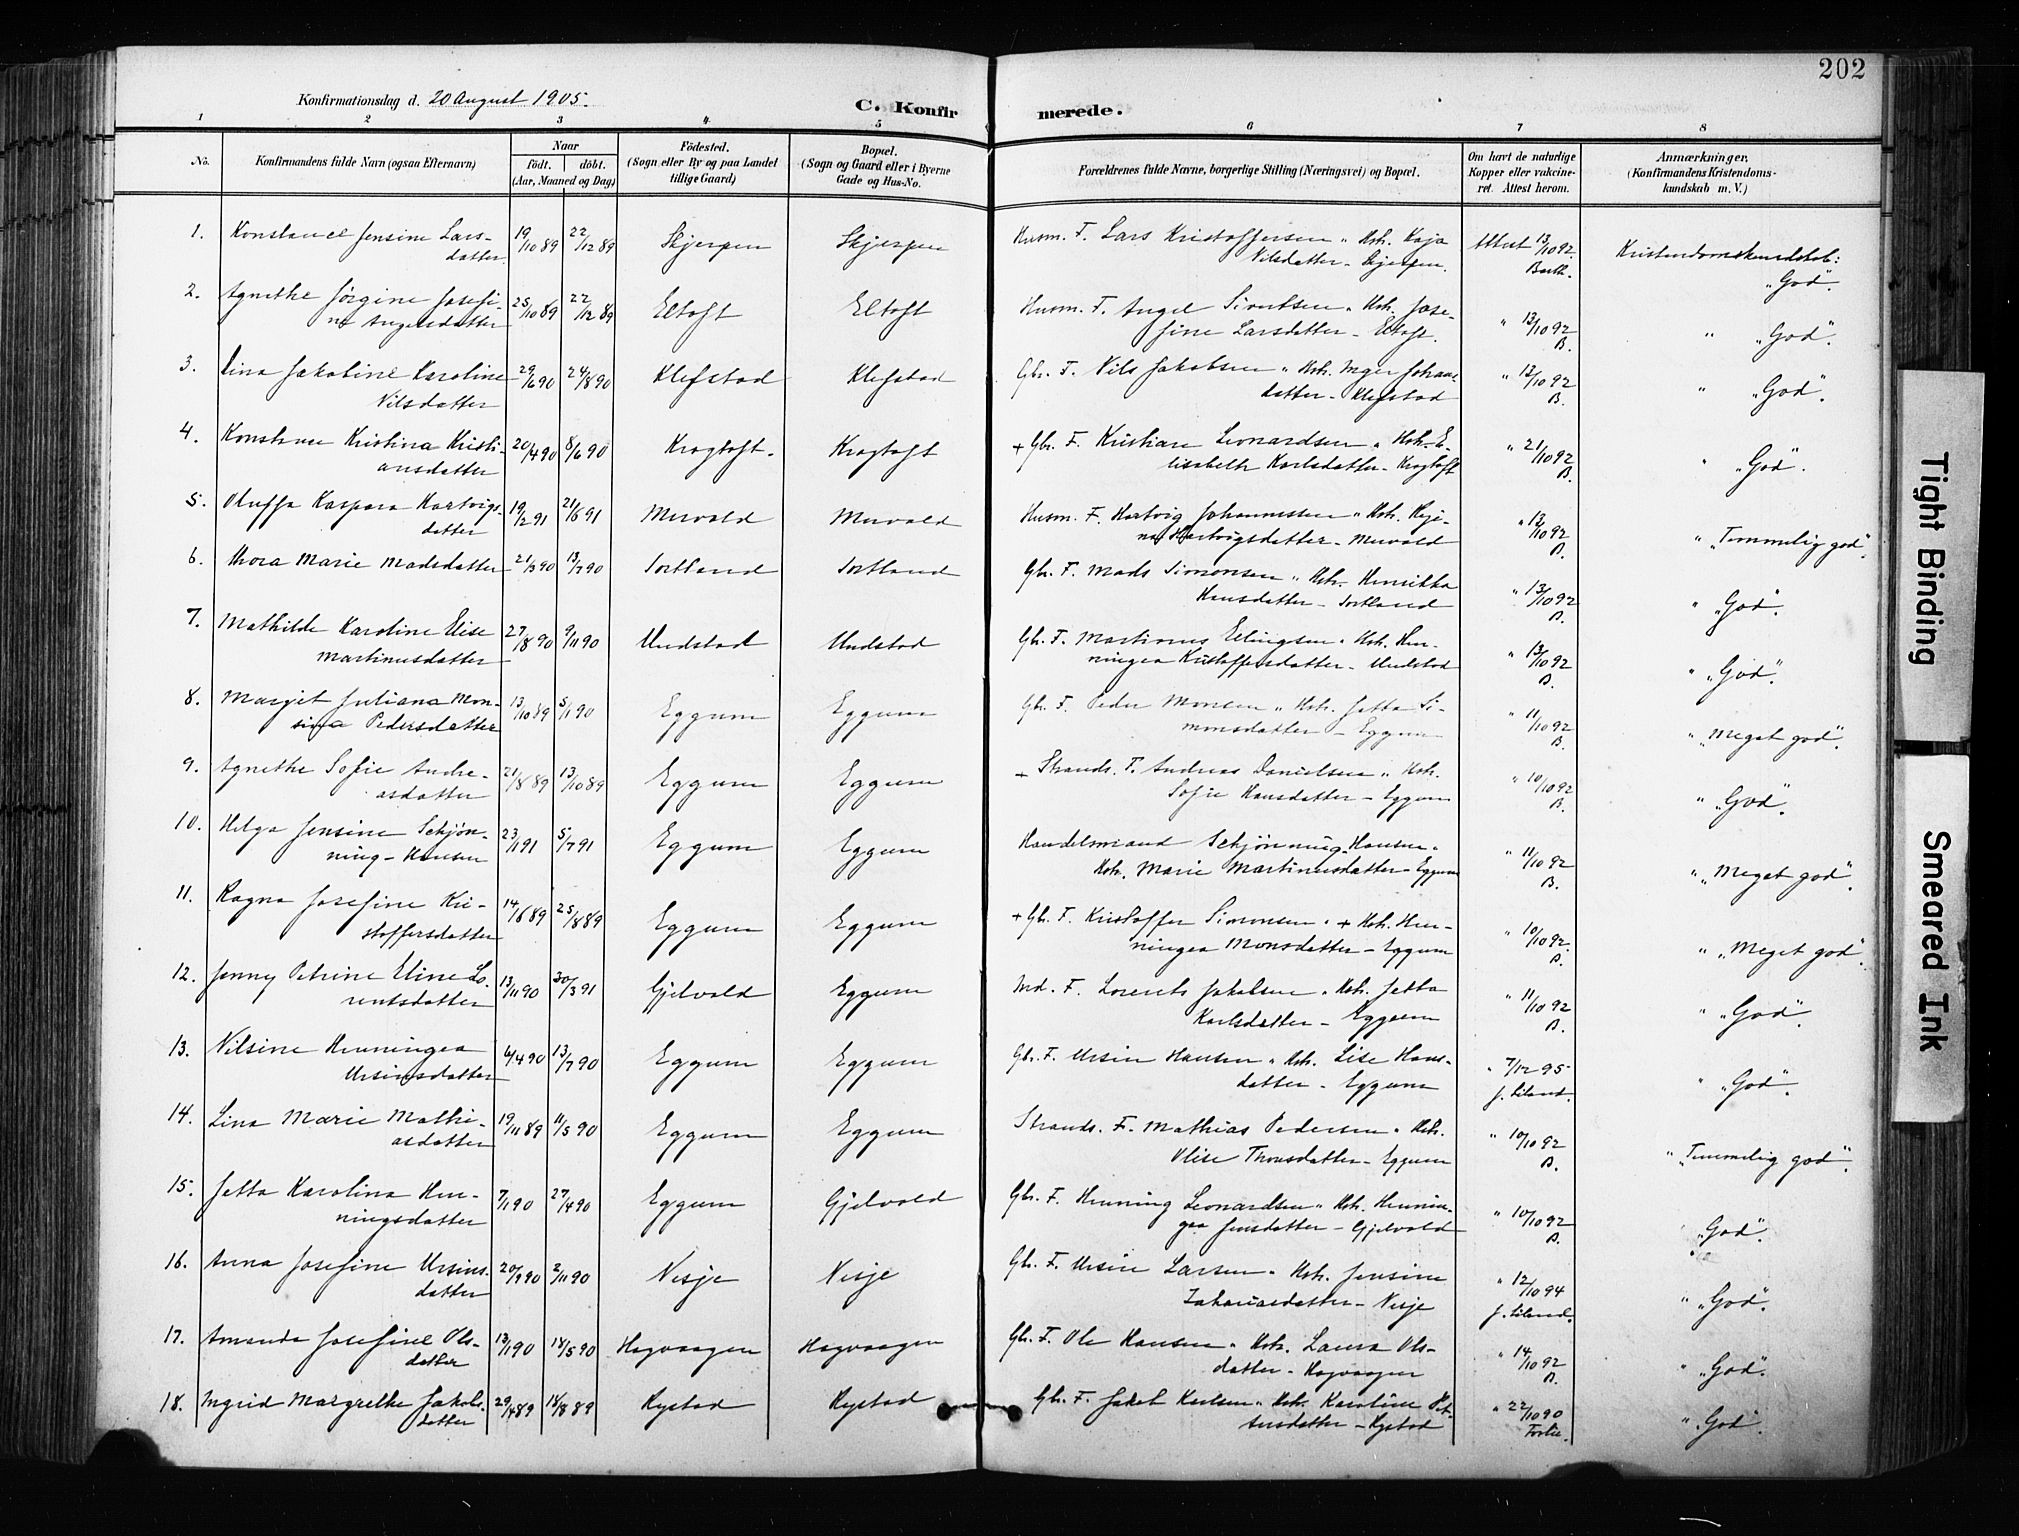 202
Konfirmationsdag d. 20 August 1905.
C. Konfirmerede.
1 2 3 4 5 6 7 8
No.
Konfirmandens fulde Navn (ogsaa Efternavn)
Naar
født. døbt.
(Aar, Maaned og Dag)
Fødested.
(Sogn eller By og paa Landet
tillige Gaard)
Bopæl.
(Sogn og Gaard eller i Byerne
Gade og Hus-No.
Forældrenes fulde Navne, borgerlige Stilling (Næringsvei) og Bopæl.
Om havt de naturlige
Kopper eller vakcine-
ret. Attest herom.
Anmærkninger.
(Konfirmandens Kristendoms-
kundskab m. V.)
1. Konstance Jensine Lars- 19/10 89 22/12 89 Skjerpen Skjerpen Husm. F. Lars Kristoffersen " Hstr. Kaja Attest 13/10 92. Kristendomskundskab:
datter Nilsdatter - Skjerpen. "God".
2. Agnethe Jørgine Josefi- 25/10 89 22/12 89 Eltoft Eltoft Husm. F. Angel Sivertsen " Hstr. Jose- " 13/10 92 " "God".
ne Angelsdatter fine Larsdatter - Eltoft. B.
3. Lina Jakobine Karoline 29/6 90 24/8 90 Klefstad Klefstad Gbr. F. Nils Jakobsen " Hstr. Inger Johans- " 12/10 92 " "God".
Nilsdatter datter - Klefstad B.
4. Konstanse Kristina Kristi- 20/4 90 8/6 90 Krogtoft. Krogtoft + Gbr. F. Kristian Leonardsen " Hstr. E- " 21/10 92 " "God".
ansdatter lisabeth Karlsdatter - Krogtoft B.
5. Oluffa Kaspara Hartvigs- 19/2 91 21/6 91 Mervold Mervold Husm. F. Hartvig Johannessen " Hstr. Regi- " 13/10 92 " "Temmelig god".
datter na Hartvigsdatter - Mervold B.
6. Thora Marie Madsdatter 21/3 90 13/7 90 Sortland Sortland Gbr. F. Mads Simonsen " Hstr. Henrikka " 13/10 92 " "God".
Hansdatter - Sortland B.
7. Mathilde Karoline Elise 27/8 90 9/11 90 Undstad Undstad Gbr. F. Martinus Ellingsen " Hstr. Hen- " 13/10 92 " "God".
Martinusdatter ningea Kristoffersdatter - Undstad B.
8. Margit Juliana Mon- 13/10 89 5/1 90 Eggum Eggum Gbr. F. Peder Monsen " Hstr. Jetta Si- " 11/10 92 " "Meget god".
sina Pedersdatter monsdatter - Eggum B.
9. Agnethe Sofie Andre- 21/8 89 13/10 89 Eggum Eggum + Strands. F. Andreas Danielsen " Hstr. " 10/10 92 " "God".
asdatter Sofie Hansdatter - Eggum B.
10. Helga Jensine Schjøn- 23/1 91 5/7 91 Eggum Eggum Handelsmand Schjønning Hansen " " 11/10 92 " "Meget god".
ning-Hansen Hstr. Marie Martinusdatter - Eggum B.
11. Ragna Josefine Kri- 14/6 89 25/8 89 Eggum Eggum + Gbr. F. Kristoffer Simonsen " + Hstr. Hen- " 10/10 92. " "Meget god".
stoffersdatter ningea Monsdatter - Eggum B.
12. Jenny Petrine Eline Lo- 13/11 90 30/3 91 Gjelvold Eggum Ind. F. Lorents Jakobsen " Hstr. Jetta " 11/10 92 " "God".
rentsdatter Karlsdatter - Eggum B.
13. Nilsine Henningea 6/4 90 13/7 90 Eggum Eggum Gbr. F. Ursin Hansen " Hstr. Lise Hans- " 7/12 95 " "God".
Ursinsdatter datter - Eggum J. Liland.
14. Lina Marie Mathi- 19/11 89 11/5 90 Eggum Eggum Strands. F. Mathias Pedersen " Hstr. " 10/10 92 " "Temmelig god".
asdatter Olise Thomsdatter - Eggum B.
15. Jetta Karolina Hen- 7/1 90 27/4 90 Eggum Gjelvold Gbr. F. Henning Leonardsen " Hstr. Hennin- " 10/10 92 "God".
ningsdatter gea Jensdatter - Gjelvold B.
16. Anna Josefine Ursins- 20/9 90 2/11 90 Nesje Nesje Gbr. F. Ursin Larsen " Hstr. Jensine " 12/10 94 " "God".
datter Zakariasdatter - Nesje J. Liland.
17. Amanda Josefine Ols- 13/1 90 18/5 90 Hagvaagen Hagvaagen Gbr. F. Ole Hansen " Hstr. Laura Ols- " 14/10 92 " "God".
datter datter - Hagvaagen B.
18. Ingrid Margrethe Jakobs- 29/4 89 18/8 89 Rystad Rystad Gbr. F. Jakob Karlsen " Hstr. Karoline Pet- " 22/10 90 " "God".
datter datter - Rystad
Tight Binding
Smeared Ink